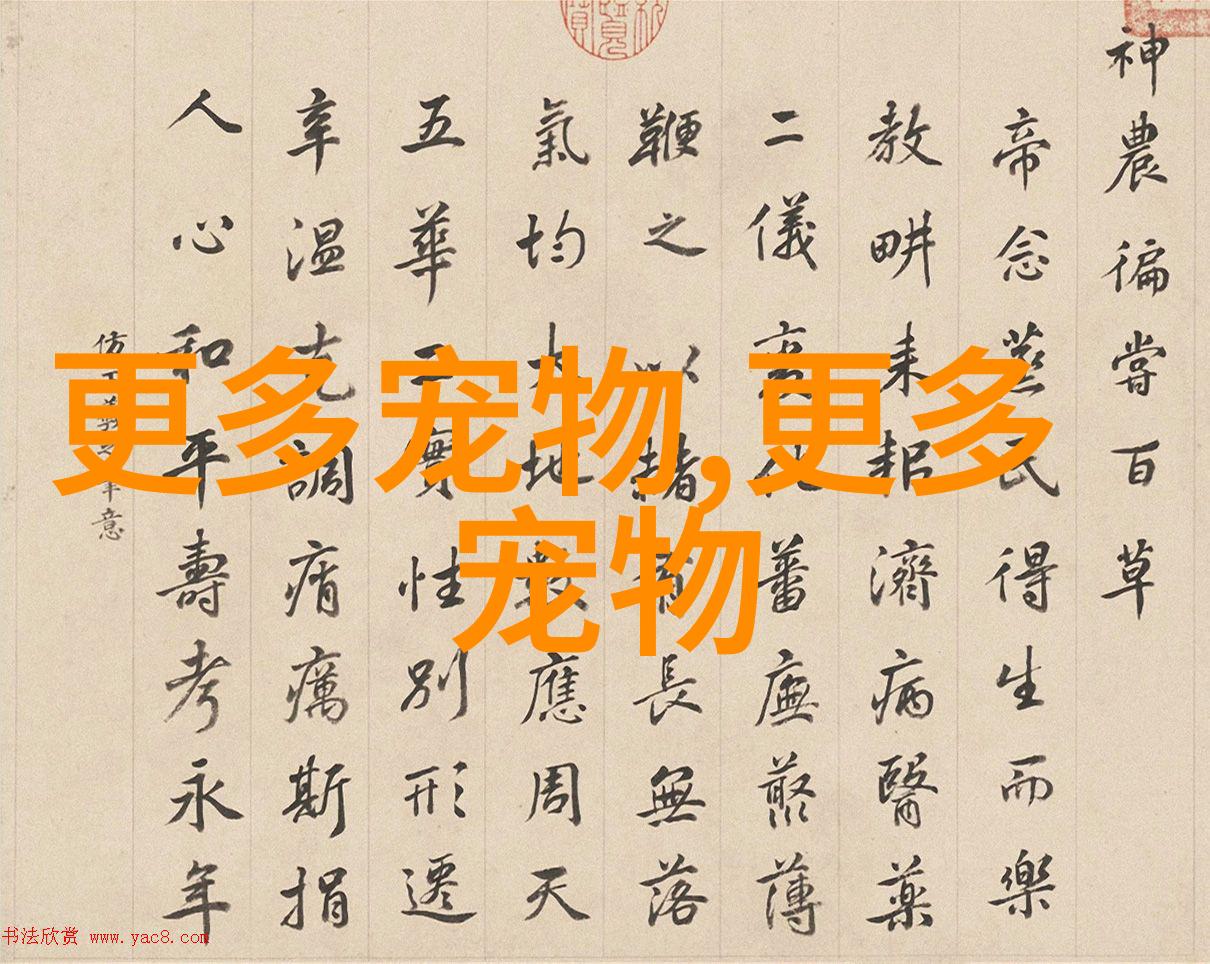 神農徧嘗百草
帝念蒸民得生而樂
教畊耒耜濟病醫藥
二儀化蕃廡藂薄
鞭之以赭有長無落
氣均大地數應周天
五華二實性別形遷
辛温克調痟癘斯捐
人心和平壽考永年
仿意
更多宠物,更多
宠物
书法欣赏 www.yac8.com